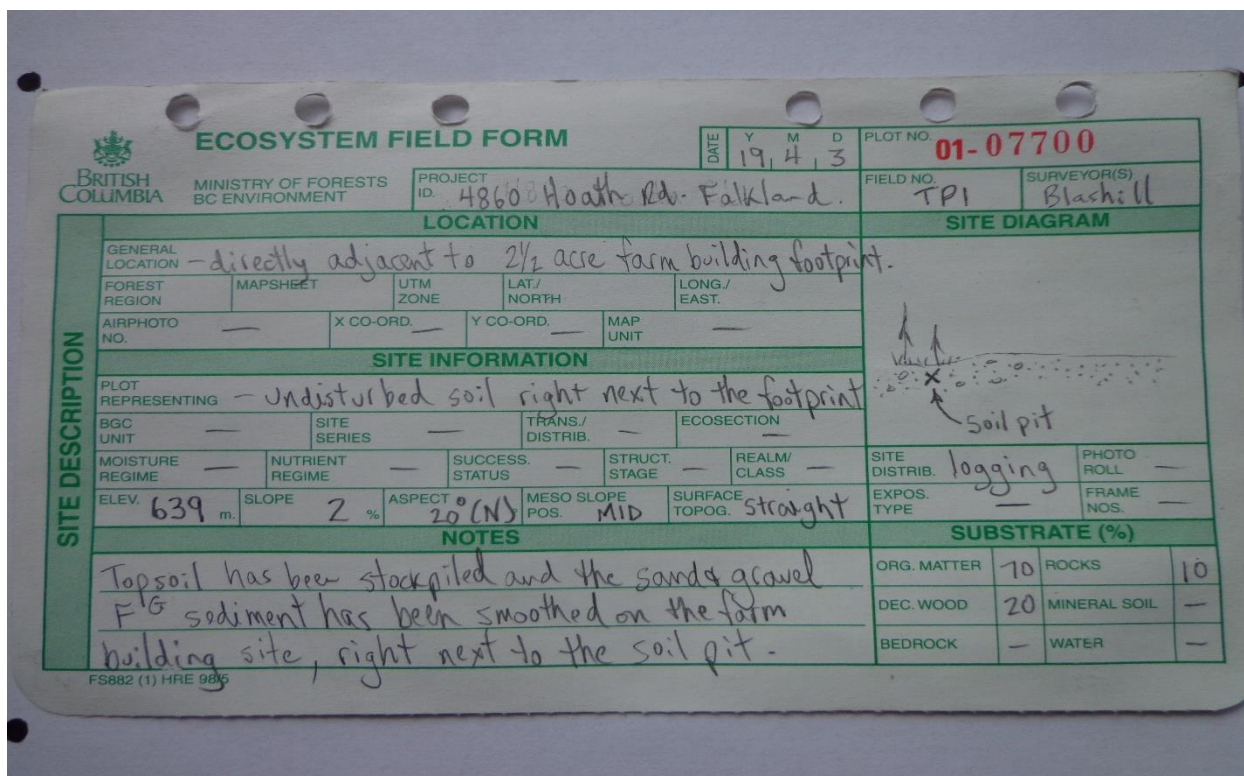 ECOSYSTEM FIELD FORM
BRITISH COLUMBIA
MINISTRY OF FORESTS
BC ENVIRONMENT
DATE Y M D 19, 4, 3
PLOT NO. 01-07700
PROJECT ID. 4860 Hoath Rd. Falkland.
FIELD NO. TP1
SURVEYOR(S) Blashill
SITE DESCRIPTION
LOCATION
GENERAL LOCATION - directly adjacent to 2½ acre farm building footprint.
FOREST REGION MAPSHEET UTM ZONE LAT./ NORTH LONG./ EAST.
AIRPHOTO NO. — X CO-ORD. — Y CO-ORD. — MAP UNIT —
SITE INFORMATION
PLOT REPRESENTING - Undisturbed soil right next to the footprint
BGC UNIT — SITE SERIES — TRANS./ DISTRIB. — ECOSECTION —
MOISTURE REGIME — NUTRIENT REGIME — SUCCESS. STATUS — STRUCT. STAGE — REALM/ CLASS —
ELEV. 639 m. SLOPE 2 % ASPECT 20°(N) MESO SLOPE POS. MID SURFACE TOPOG. straight
NOTES
Topsoil has been stockpiled and the sand & gravel
F^G sediment has been smoothed on the farm
building site, right next to the soil pit.
FS882 (1) HRE 98/5
SITE DIAGRAM
x
Soil pit
SITE DISTRIB. logging PHOTO ROLL —
EXPOS. TYPE — FRAME NOS. —
SUBSTRATE (%)
ORG. MATTER 70 ROCKS 10
DEC. WOOD 20 MINERAL SOIL —
BEDROCK — WATER —